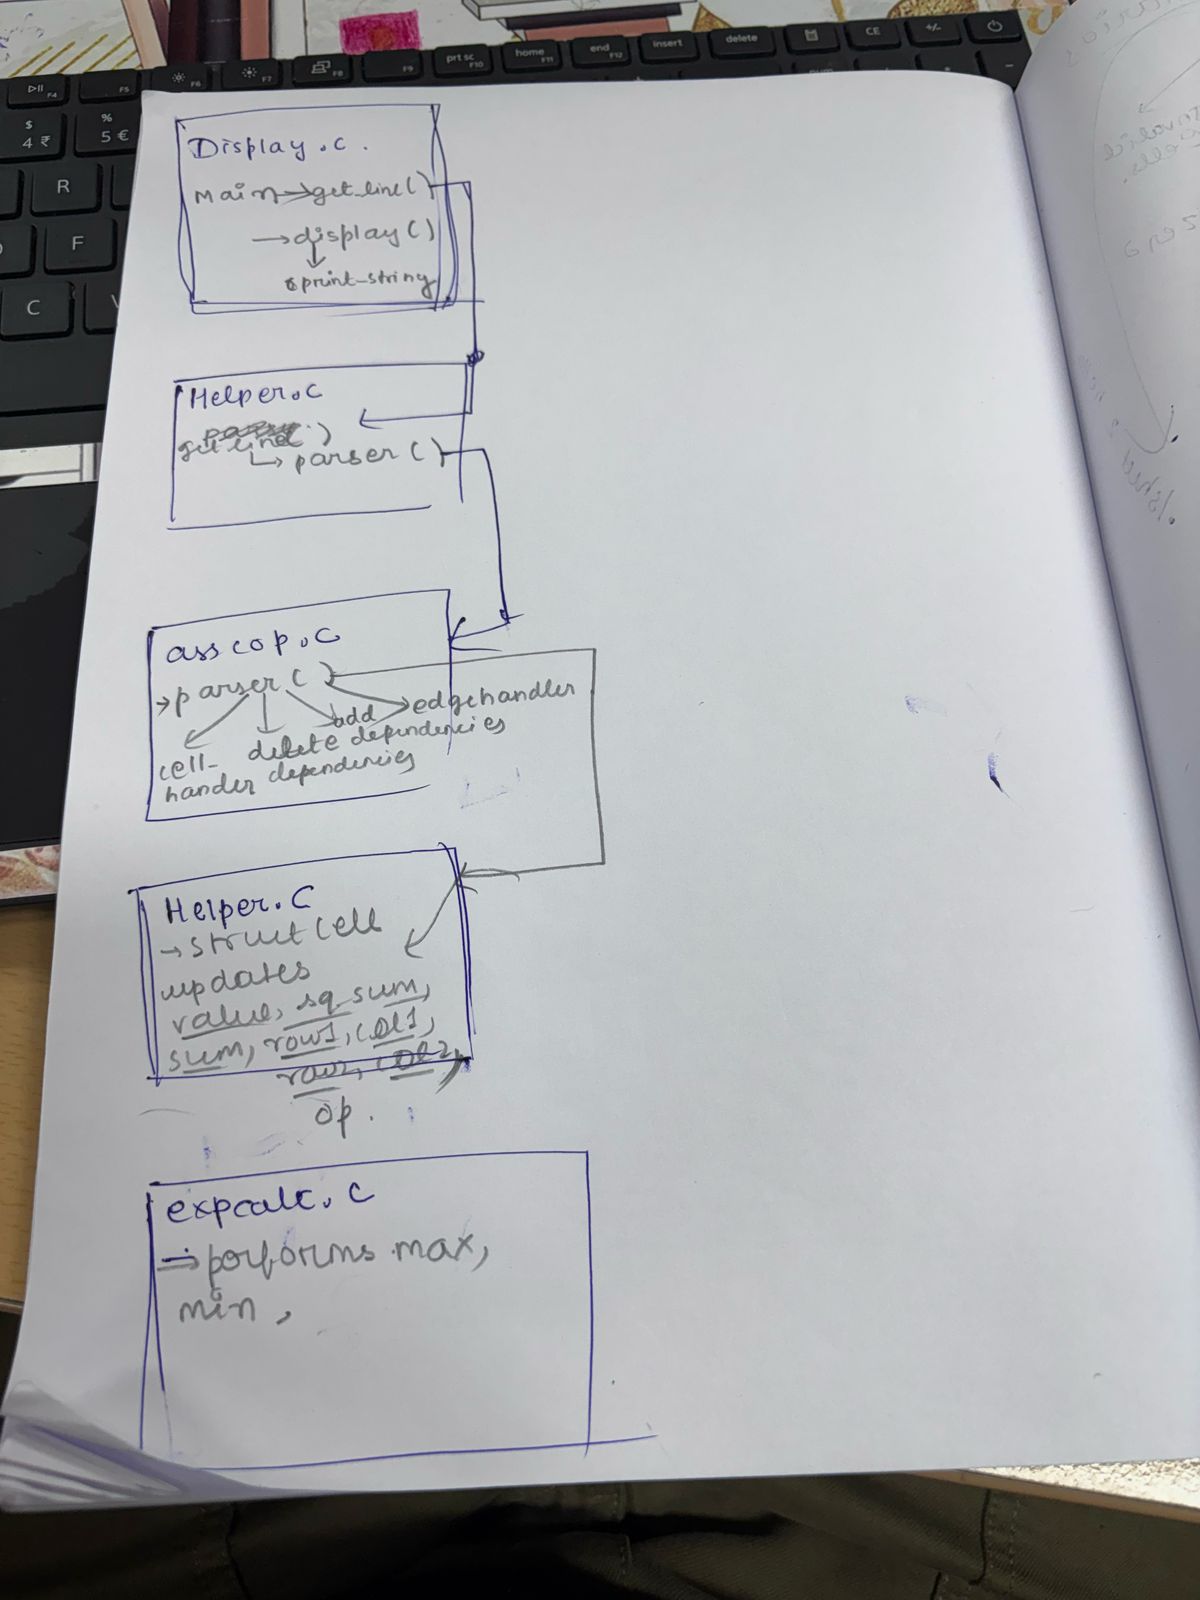 F5
F6
F7
F8
F9
prt sc
F10
home
F11
end
F12
insert
delete
CE
+/-
F4
$
4 ₹
%
5 €
R
F
C
Display.c.
Main→get_line()
→display()
↓
sprint_string
Helper.c
getline()
↳ parser()
asscop.c
→parser()
edgehandler
add
dependencies
delete
dependencies
cell-
hander
Helper.C
→struct Cell
updates
value, sq sum,
sum, row1, col1,
row2, col2,
op.
expcalc.c
→performs max,
min,